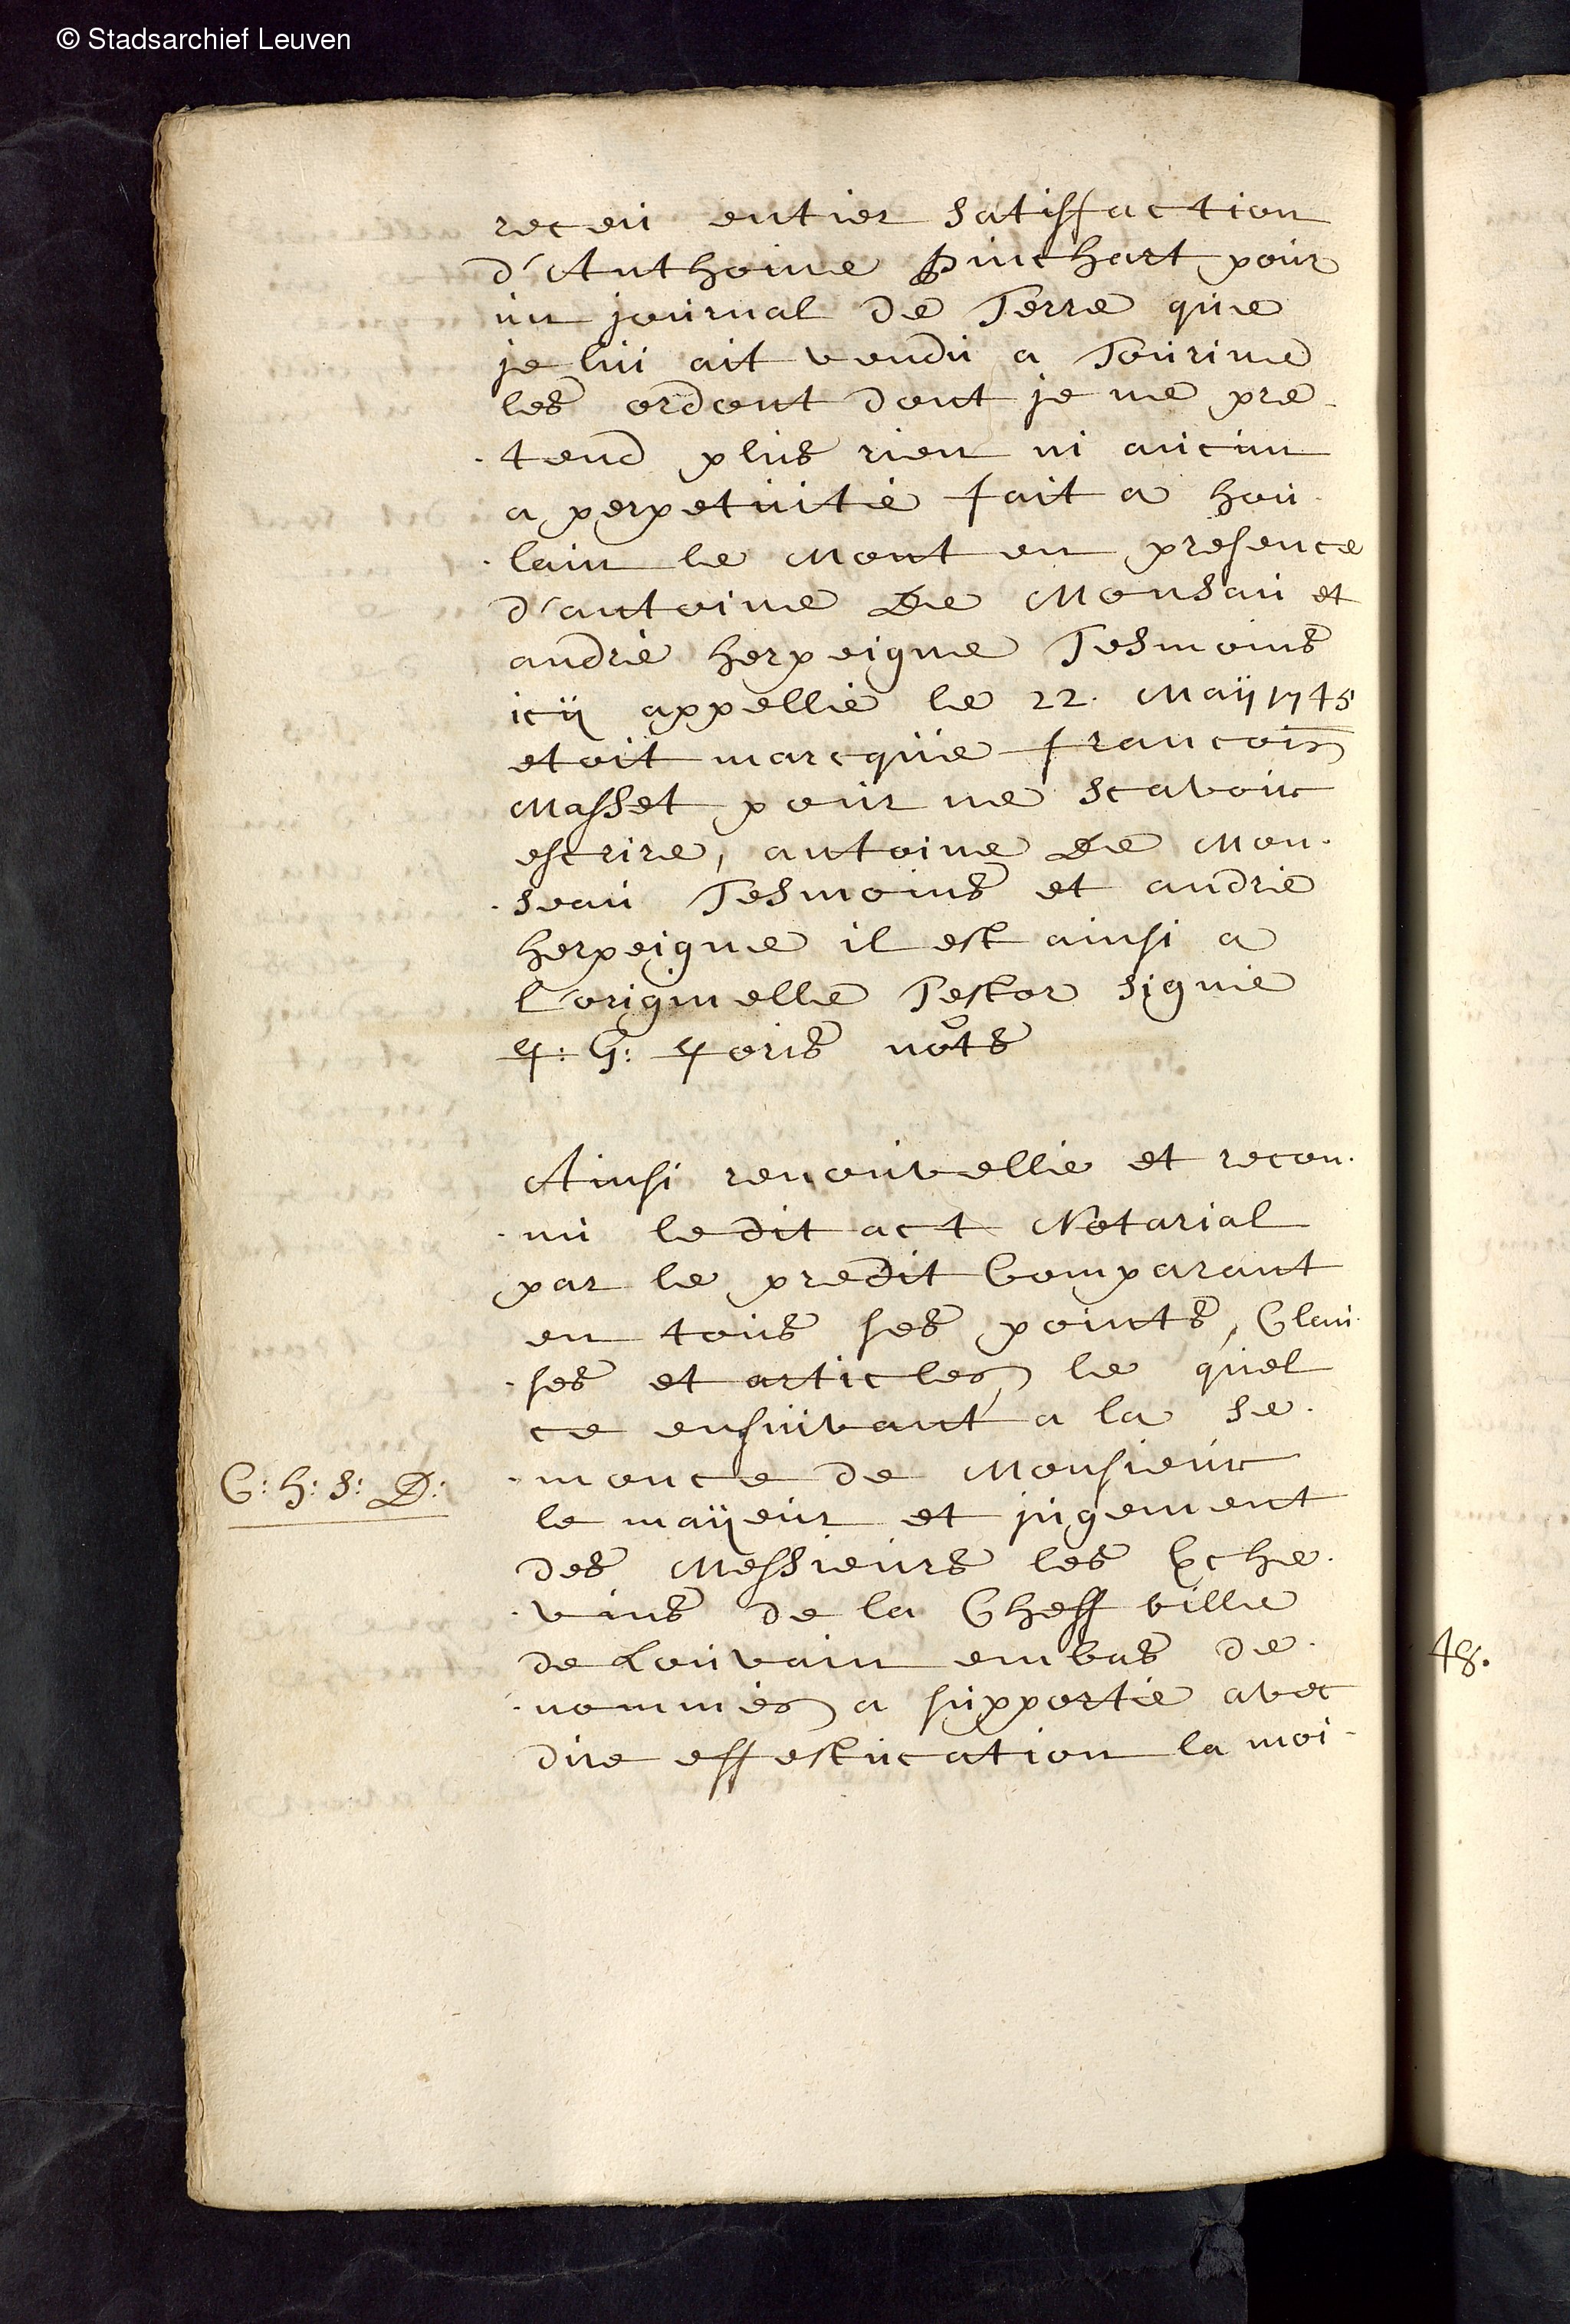 © Stadsarchief Leuven
receu entier satisffaction
d'Anthoine Pinchart pour
un journal de Terre que
je lui ait vendu a Tourine
les ordont dont je ne pre-
-tend plus rien ni aucun
a perpetuité fait a hou-
-lain le Mont en presence
d'antoine De Monsau et
andrie herpeigne Tesmoins
icÿ appellie le 22. Maÿ 1745
etoit marcquie francois
Masset pour ne scavoir
escrire, antoine De Mon-
-seau Tesmoins et andrie
herpeigne il est ainsi a
l'originelle Testor signie
G: nots
Ainsi renouvellie et recon-
-nu le dit act Notarial
par le predit Comparant
en tous ses points, Clau-
-ses et articles, le quel
ce ensuivant a la se-
C: H: S: D:
-monce de Monsieur
le maÿeur et jugement
des Messieurs les Eche-
-vins de la Cheff ville
de Louvain embas de-
-nommiés a supportie avec
due effestucation la moi-
48.